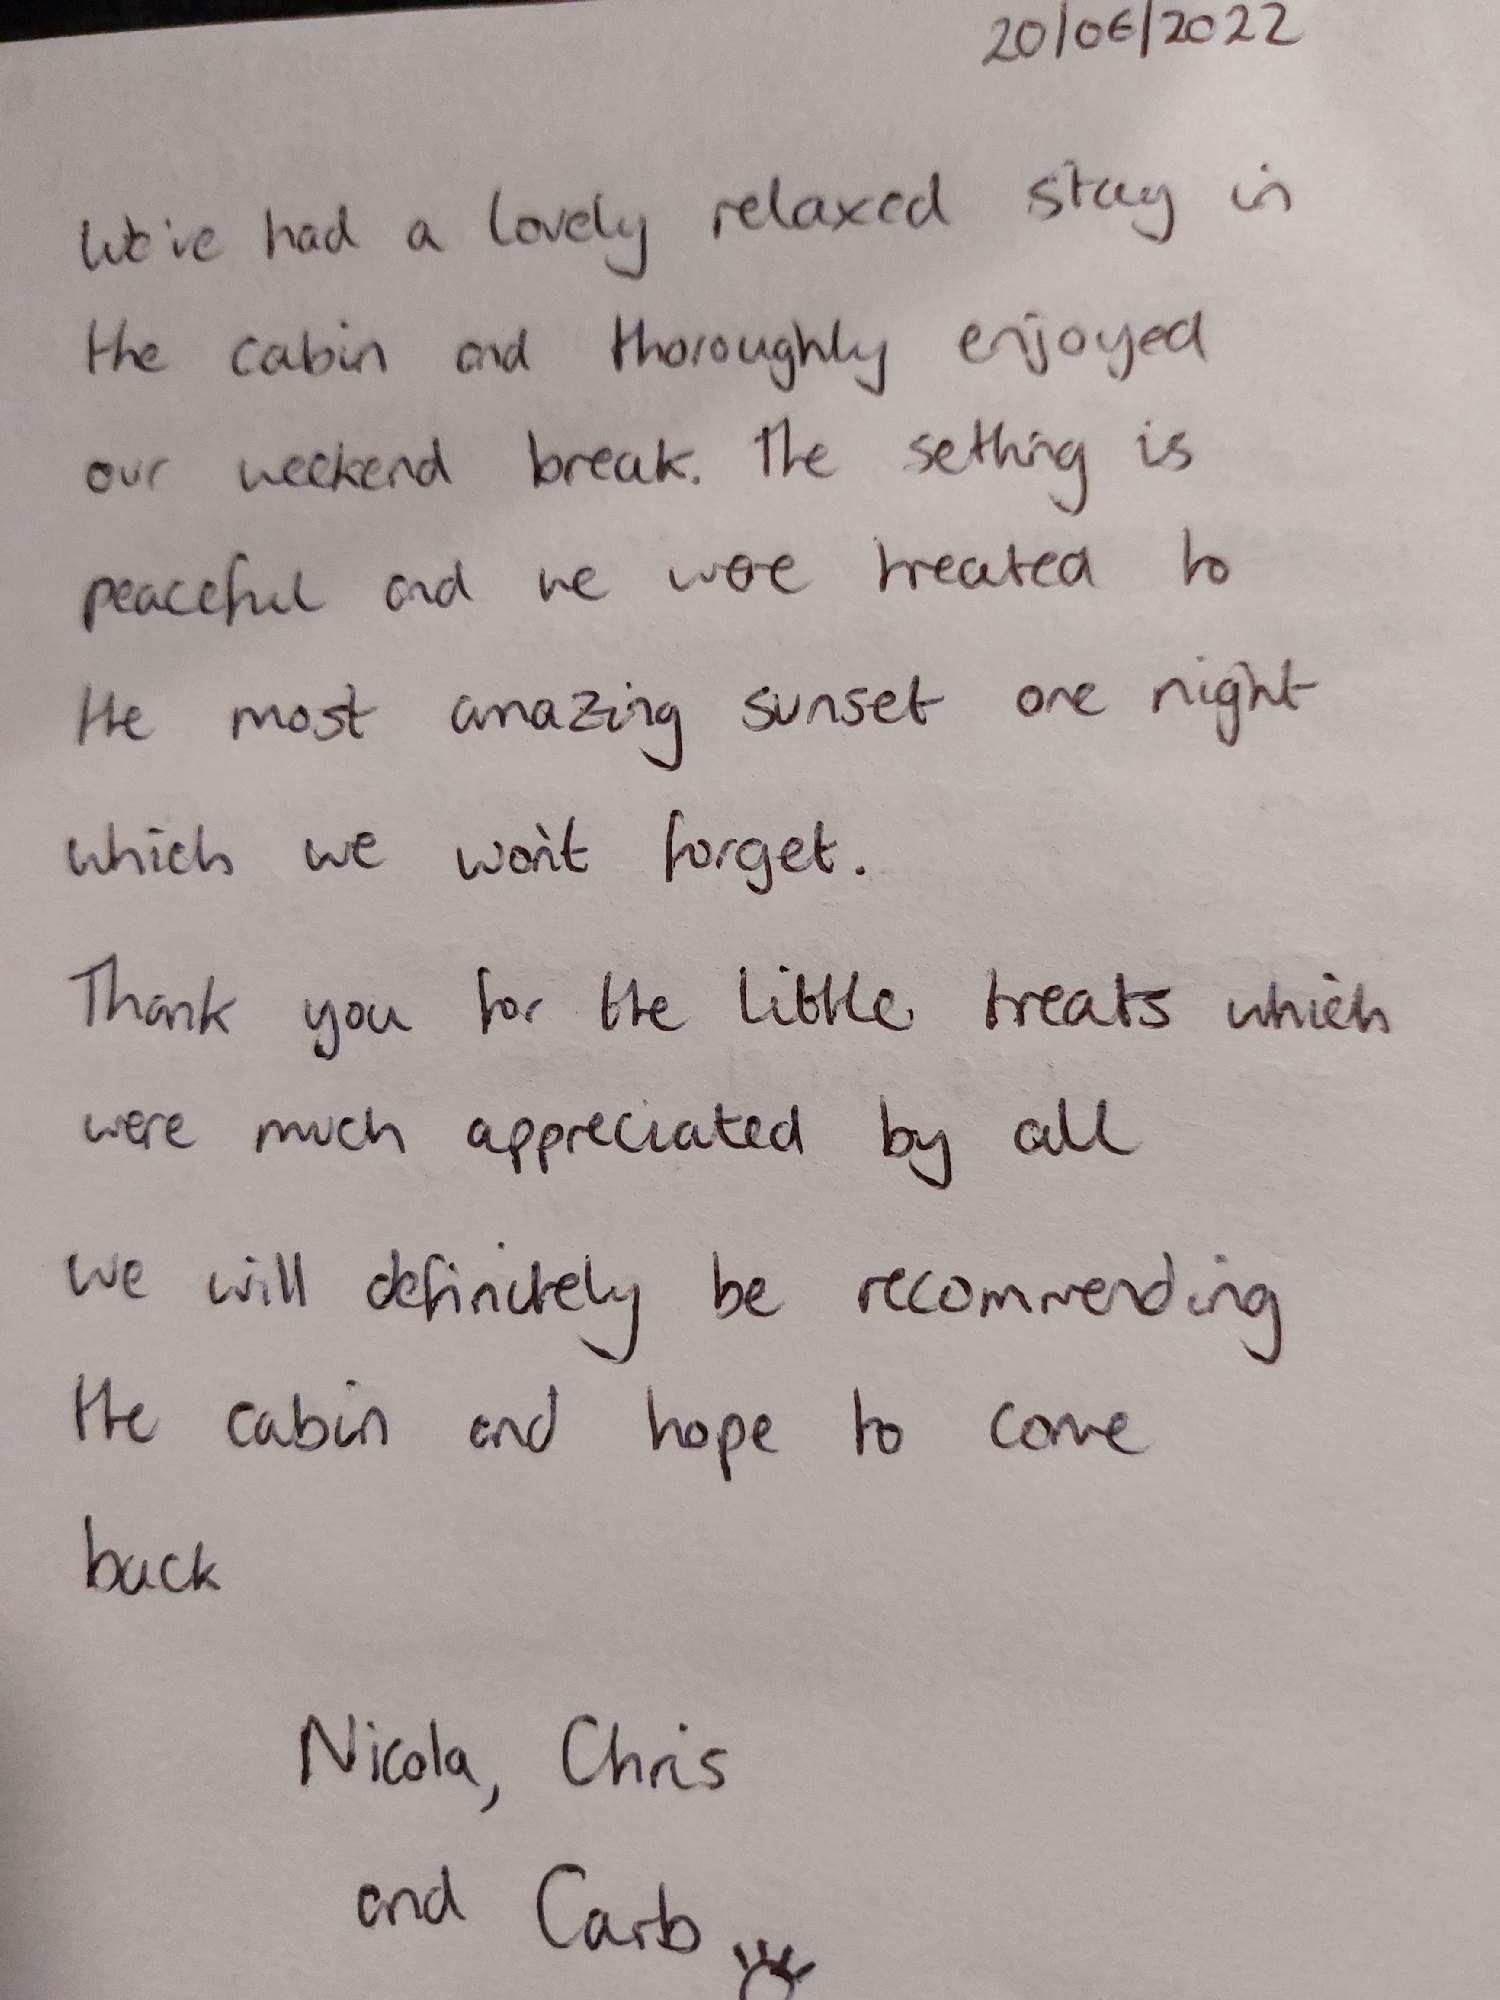 20/06/2022
We've had a lovely relaxed stay in
the cabin and thoroughly enjoyed
our weekend break. The setting is
peaceful and we were treated to
the most amazing sunset one night
which we won't forget.
Thank you for the little treats which
were much appreciated by all
we will definitely be recommending
the cabin and hope to come
back
Nicola, Chris
and Carb